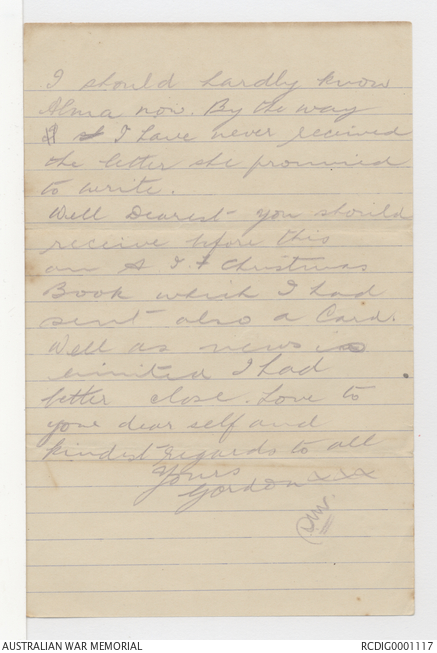 I should hardly know
Alma now. By the way
I have never received
the letter she promised
to write.
Well Dearest you should
receive before this
an A I F Christmas
Book which I had
sent also a Card.
Well as news is
limited I had
better close. Love to
your dear self and
kindest regards to all
Yours
Gordon xxx
AUSTRALIAN WAR MEMORIAL
RCDIG0001117